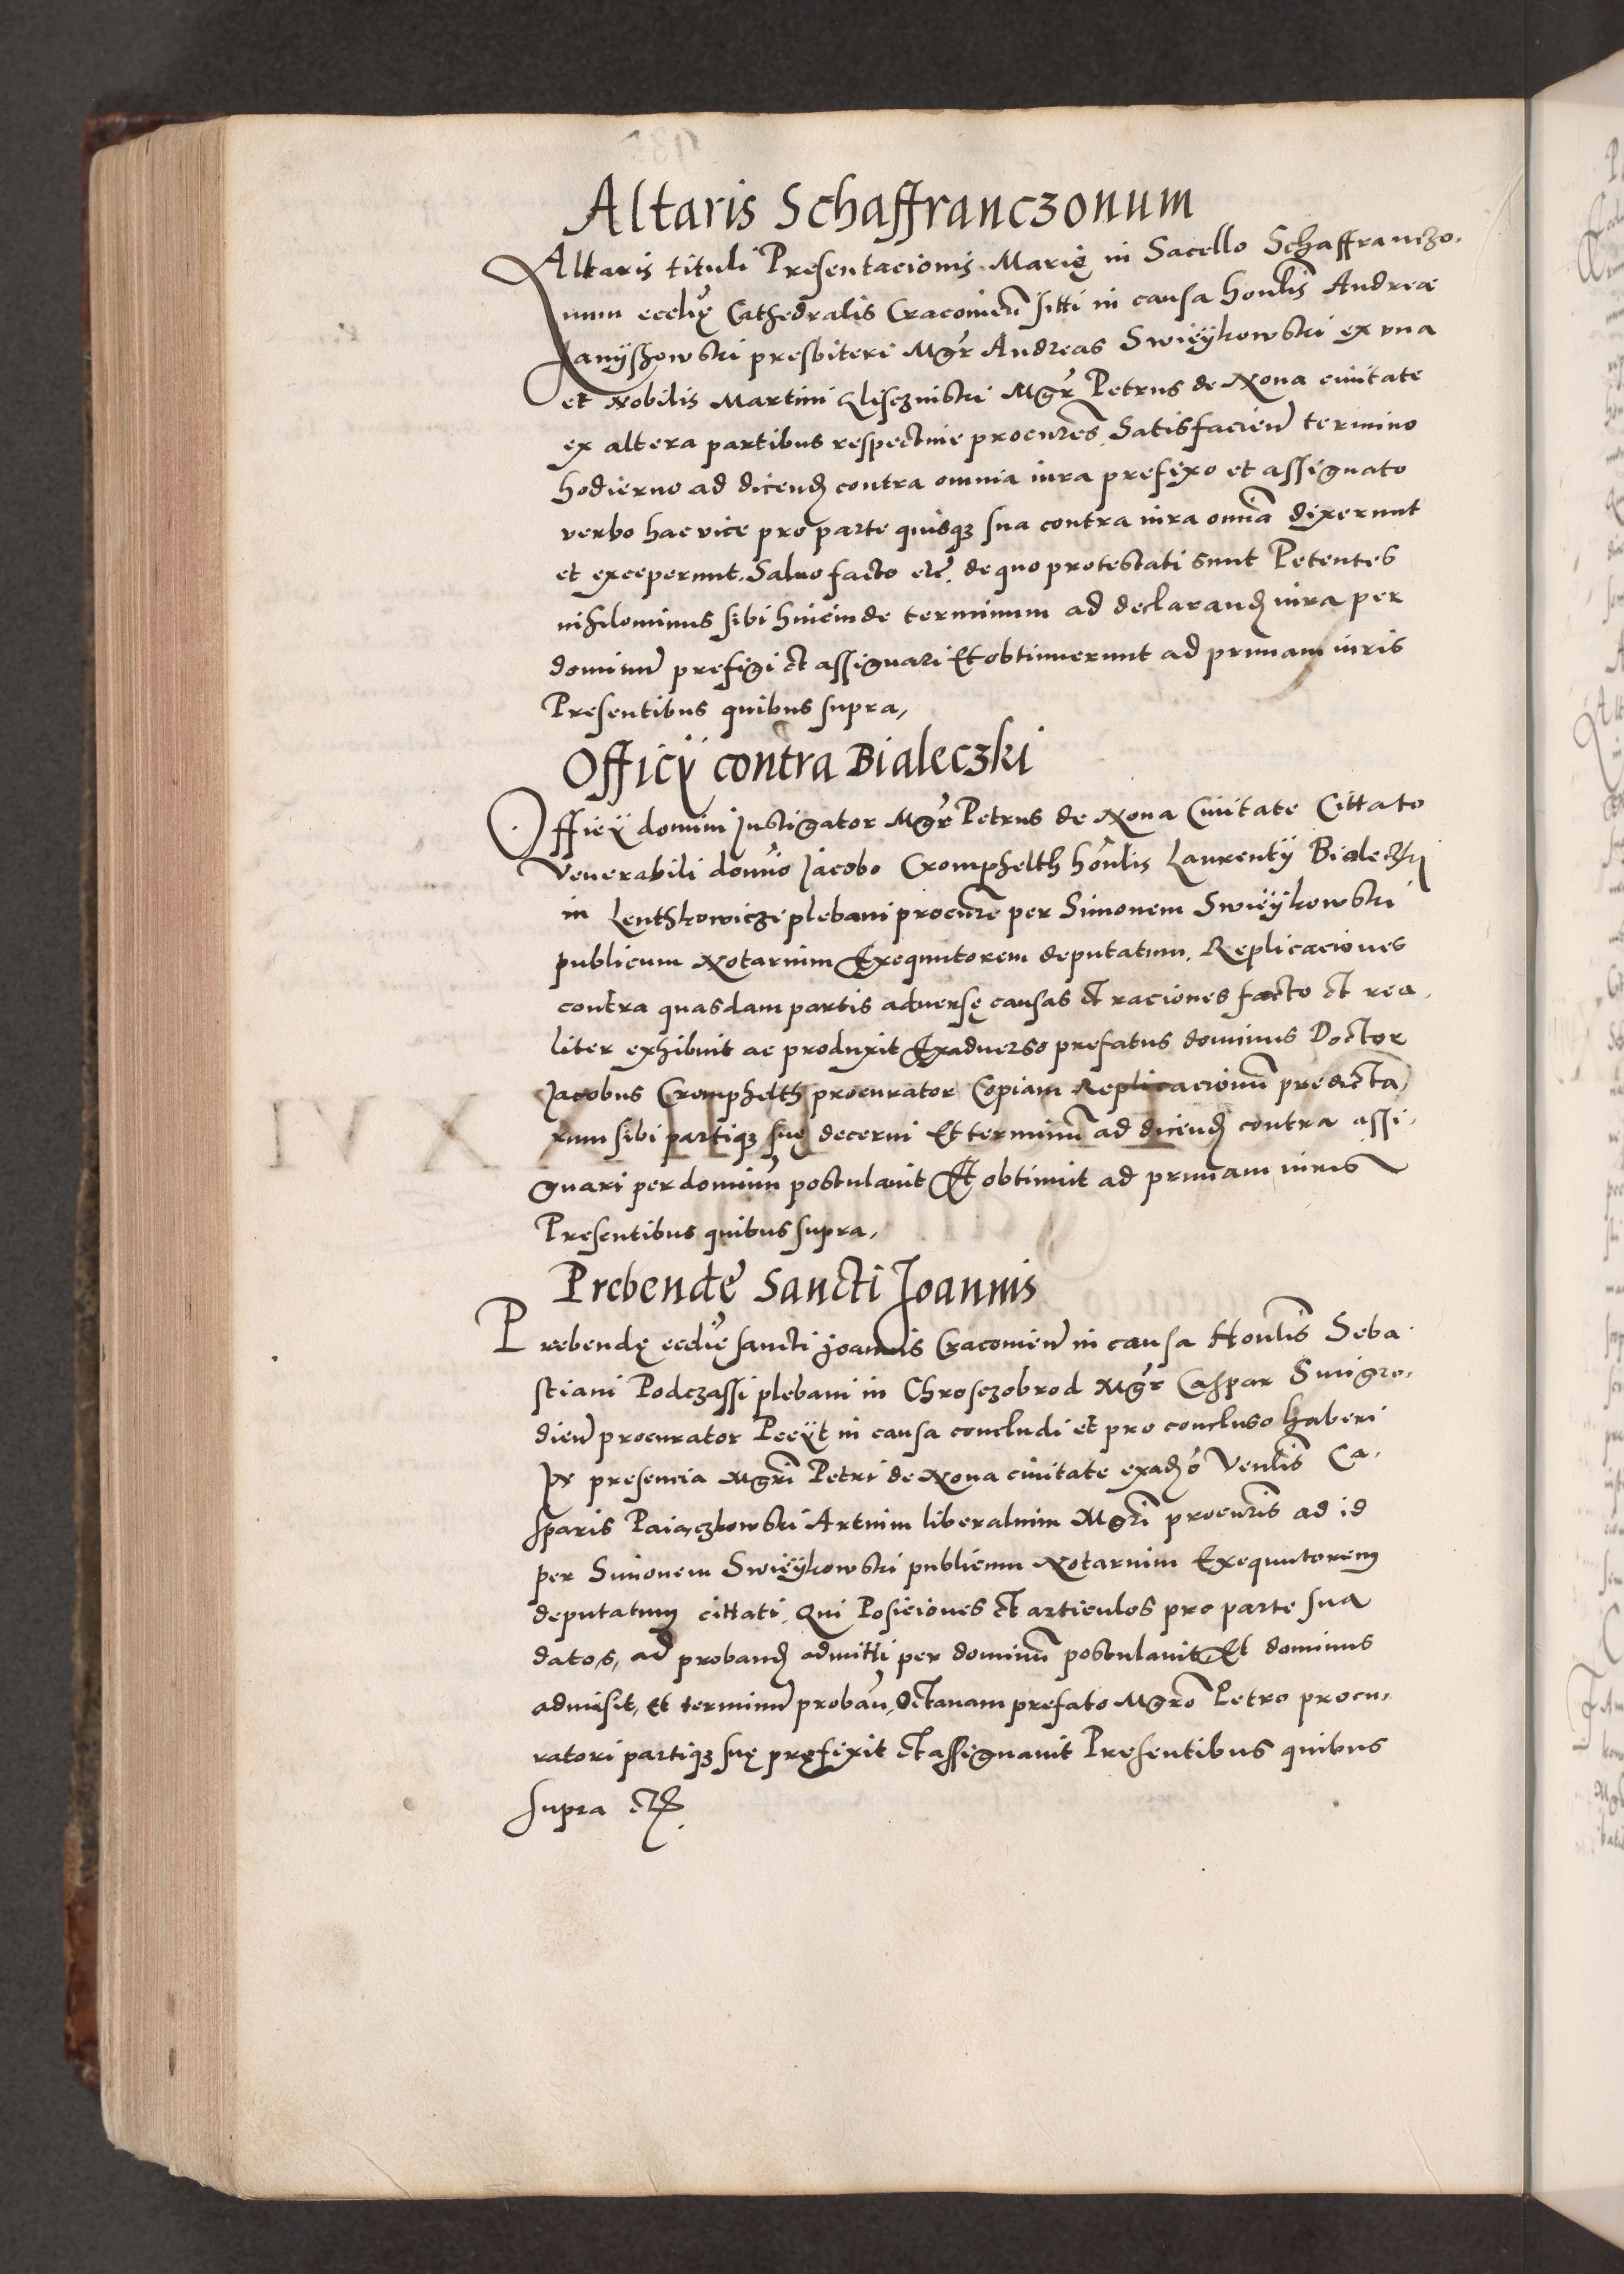 Altaris Schaffranczonum
Altaris tituli Presentacionis Marię in Sacello Schaffranczo-
num ecclię Cathedralis Cracovień sitti in causa honlis Andreæ
Janyszowski presbiteri Mgr Andreas Swieÿkowski ex vna
et Nobilis Martini Gliseznisti Mgr Petrus de Nova civitate
ex altera partibus respective procures, Satisfacien termino
hodierno ad dicend contra omnia iura prefixo et assignato
verbo hac vice pro parte quisqz sua contra iura omnia dixerunt
et exceperunt. Salvo facto etc. de quo protestati sunt Petentes
nihilominus sibi hincinde terminum ad declarand iura per
dominu prefigi et assignari Et obtinuerunt ad primam iuris
Presentibus quibus supra,
Officÿ contra Bialeczki
Officÿ domini Instigator Mgr Petrus de Nova Civitate Cittato
Venerabili domino Jacobo Cromphelth honlis Laurentÿ Bialeczki
in Lenthkowicze plebani procure per Simonem Swieÿkowski
publicum Notarium Exequutorem deputatum, Replicaciones
contra quasdam partis adversę causas et raciones facto et rea-
liter exhibuit ac produxit Exadverso prefatus dominus Doctor
Jacobus Cromphelth procurator Copiam Replicacionum predicta-
rum sibi partiqz suę decerni Et terminum ad dicend contra assi-
gnari per dominum postulavit Et obtinuit ad primam iuris
Presentibus quibus supra,
Prebendę Sancti Joannis
Prebendę ecclię sancti Joannis Cracovień in causa Honlis Seba-
stiani Podczassi plebani in Chrosczobrod Mgr Caspar Snigro-
dień procurator Peeÿt in causa concludi et pro concluso haberi
In presencia Mgri Petri de Nova civitate exadso Venlis Ca-
sparis Paiączkowski Artium liberalium Mgri procuris ad id
per Simonem Swieÿkowski publicum Notarium Exequutorem
deputatum cittati, Qui Posiciones et articulos pro parte sua
datos, ad proband admitti per dominum postulavit Et dominus
admisit, et terminu proban, Octavam prefato Mgro Petro procu-
ratori partiqz suę pręfixit et assignavit Presentibus quibus
supra etc.
XVI